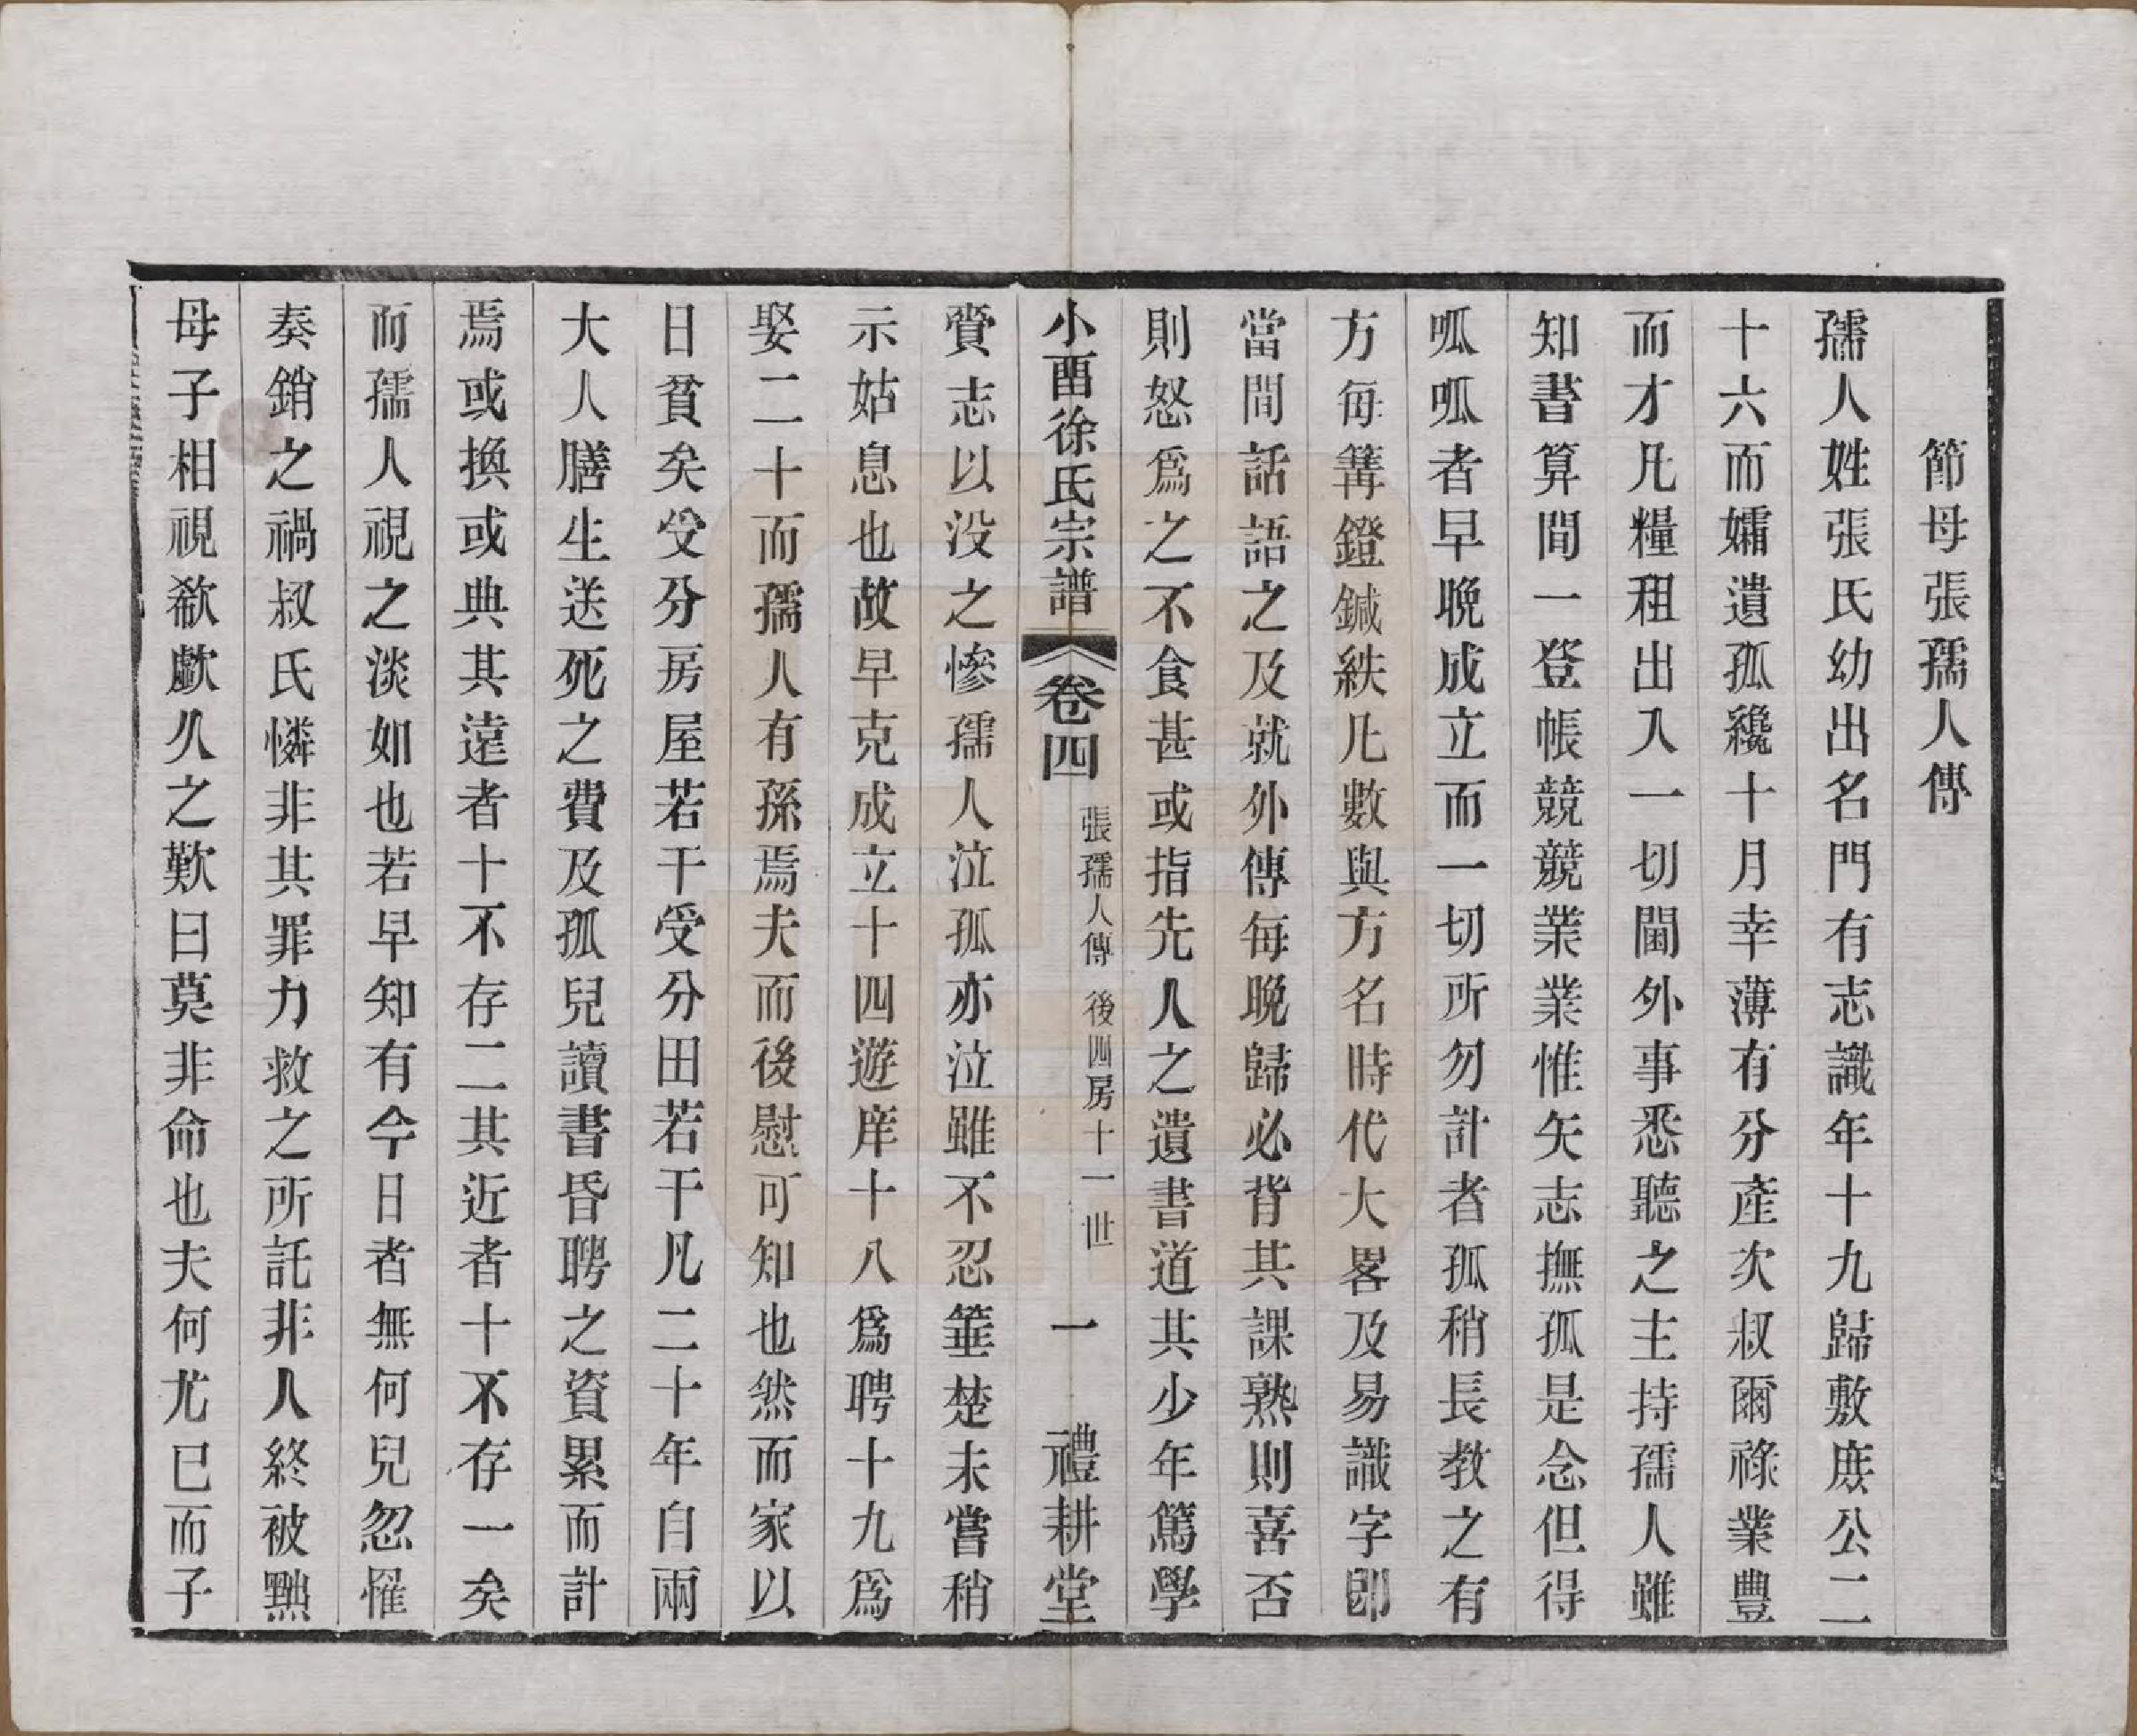 節母張孺人傳
孺人姓張氏幼出名門有志識年十九歸敷庶公二
十六而孀遺孤纔十月幸薄有分產次叔爾祿業豐
而才凡糧租出入一切閫外事悉聽之主持孺人雖
知書算間一登帳競競業業惟矢志撫孤是念但得
呱呱者早晚成立而一切所勿計者孤稍長教之有
方每篝鐙鍼紩凡數與方名時代大畧及易識字卽
當間話語之及就外傳每晚歸必背其課熟則喜否
則怒爲之不食甚或指先人之遺書道其少年篤學
小酉徐氏宗譜 卷四 張孺人傳 後四房十一世 一 禮耕堂
賫志以没之慘孺人泣孤亦泣雖不忍箠楚未嘗稍
示姑息也故早克成立十四遊庠十八爲聘十九爲
娶二十而孺人有孫焉夫而後慰可知也然而家以
日貧矣父分房屋若干受分田若干凡二十年自兩
大人膳生送死之費及孤兒讀書昏聘之資累而計
焉或換或典其遠者十不存二其近者十不存一矣
而孺人視之淡如也若早知有今日者無何兒忽罹
奏銷之禍叔氏憐非其罪力救之所託非人終被黜
母子相視欷歔久之歎曰莫非命也夫何尤已而子